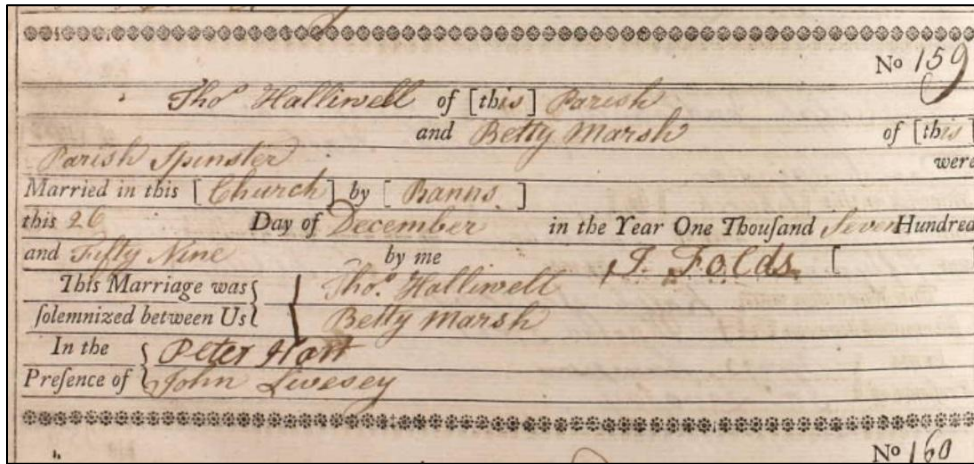 No 159
Thos Halliwell of [this] Parish
and Betty Marsh of [this]
Parish Spinster were
Married in this [Church] by [Banns.]
this 26 Day of December in the Year One Thouſand Seven Hundred
and Fifty Nine by me J. Folds. [
This Marriage was { Thos. Halliwell
ſolemnized between Us { Betty Marsh
In the { Peter Hart
Preſence of { John Livesey
No 160